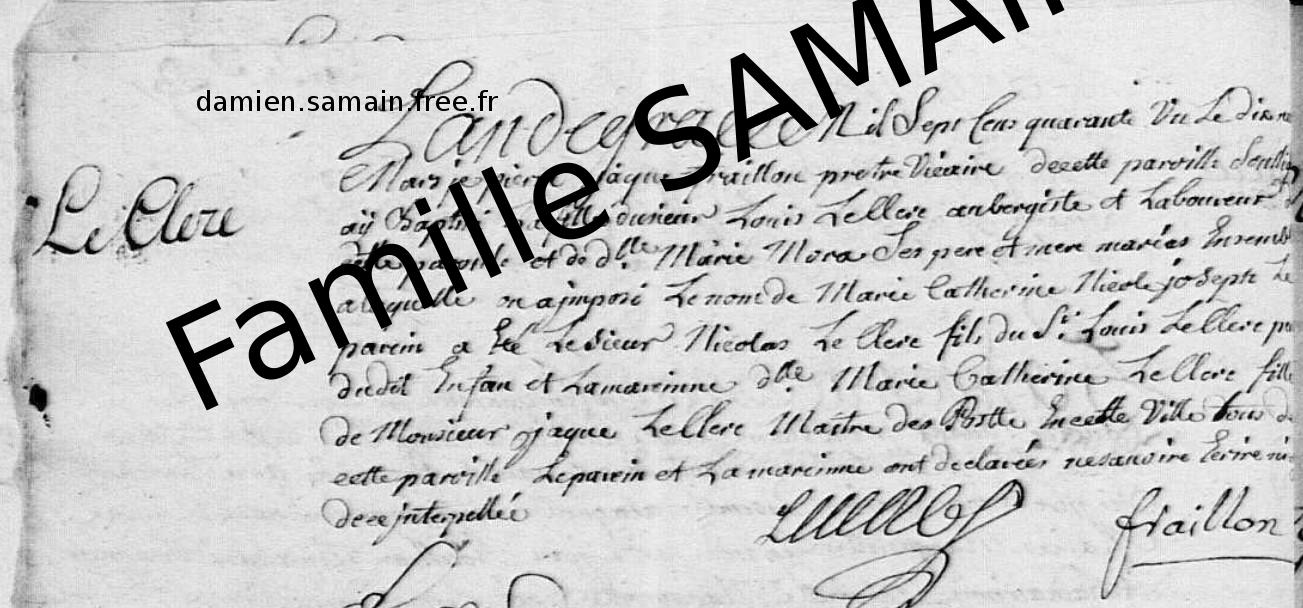 damien.samain.free.fr
Famille SAMAIN
Le Clerc
L'an de grace Mil Sept Cens quarante Un Le dix ne
Mars je pierre jaque fraillon pretre vicaire de cette paroisse Soussig
aÿ Baptisé la fille du sieur Louis Le Clerc aubergiste et Laboureur d
cette paroisse et de d.lle Marie Mora Ses pere et mere mariés Ensembl
a laquelle on a jmposé Le nom de Marie Catherine Nicole joseph Le
parein a Eté Le Sieur Nicolas Le Clerc fils du Sr. Louis Le Clerc
du dit Enfan et La mareinne d.lle Marie Catherine Le Clerc fille
de Monsieur jaque Le Clerc Maitre des Postte En cette Ville tous d
cette paroisse Le parein et La mareinne ont declarées ne savoire Ecrire ni
de ce jnterpellée
fraillon